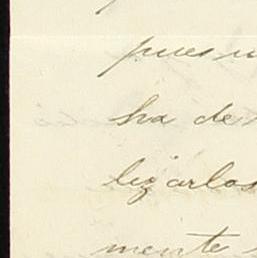 pues n
ha de
ligarlos
mente